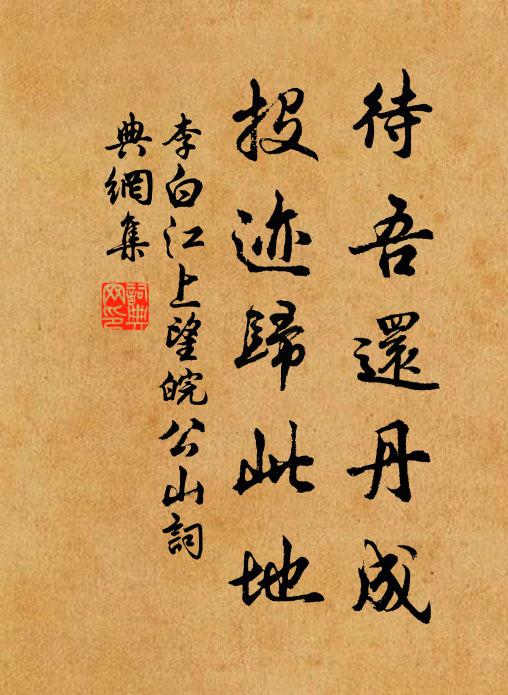 待吾還丹成
投迹歸此地
李白江上望皖公山詞
典網集
詞典网印